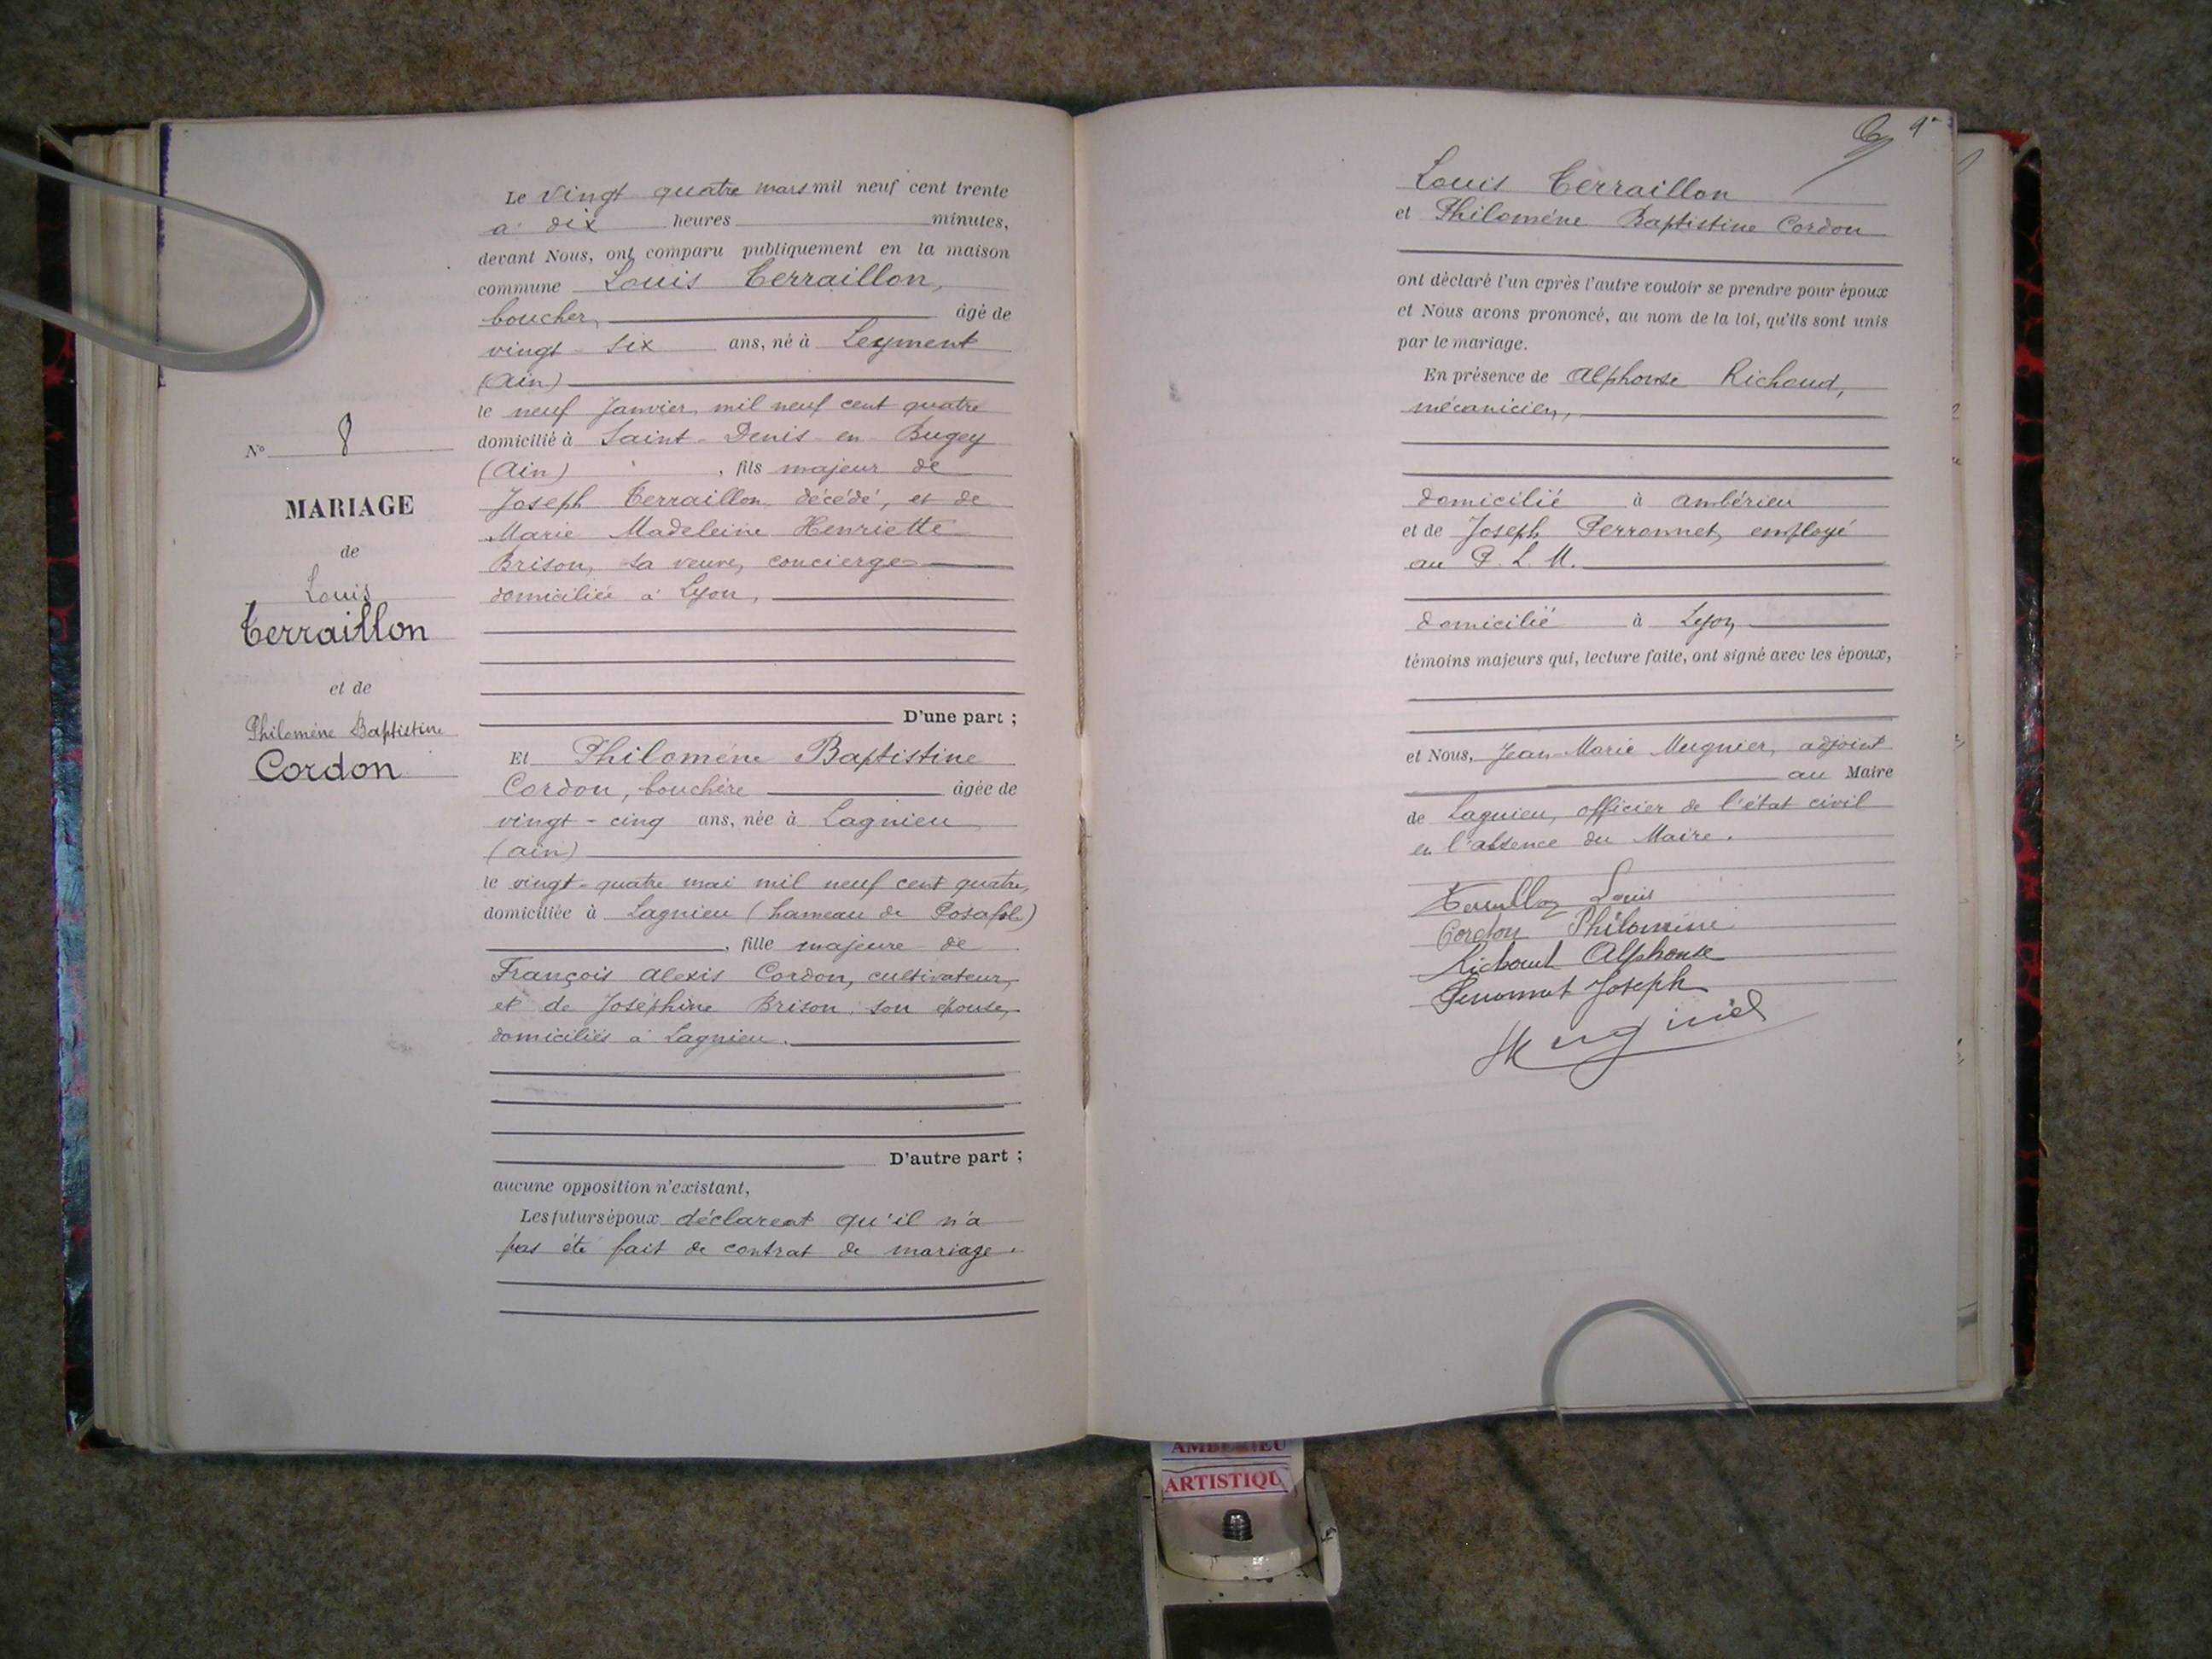 N° 8
MARIAGE
de
Louis
Terraillon
et de
Philomène Baptistine
Cordon
Le vingt quatre mars mil neuf cent trente
à dix heures minutes,
devant Nous, ont comparu publiquement en la maison
commune Louis Terraillon,
boucher, âgé de
vingt-six ans, né à Leyment
(Ain)
le neuf Janvier mil neuf cent quatre
domicilié à Saint-Denis-en-Bugey
(Ain), fils majeur de
Joseph Terraillon, décédé, et de
Marie Madeleine Henriette
Brison, sa veuve, concierge
domiciliée à Lyon,
D'une part ;
Et Philomène Baptistine
Cordon, bouchère âgée de
vingt-cinq ans, née à Lagnieu
(ain)
le vingt-quatre mai mil neuf cent quatre,
domiciliée à Lagnieu (hameau de Posafol)
, fille majeure de
François Alexis Cordon, cultivateur,
et de Joséphine Brison, son épouse,
domiciliés à Lagnieu.
D'autre part ;
aucune opposition n'existant,
Les futurs époux déclarent qu'il n'a
pas été fait de contrat de mariage.
9
Louis Terraillon
et Philomène Baptistine Cordon
ont déclaré l'un après l'autre vouloir se prendre pour époux
et Nous avons prononcé, au nom de la loi, qu'ils sont unis
par le mariage.
En présence de Alphonse Richaud,
mécanicien,
domicilié à Ambérieu
et de Joseph Perronnet, employé
au P. L. M.
domicilié à Lyon
témoins majeurs qui, lecture faite, ont signé avec les époux,
et Nous, Jean-Marie Mugnier, adjoint
au Maire
de Lagnieu, officier de l'état civil
en l'absence du Maire.
Terraillon Louis
Cordon Philomène
Richaud Alphonse
Perronnet Joseph
Mugnier
AMBERIEU
ARTISTIQU